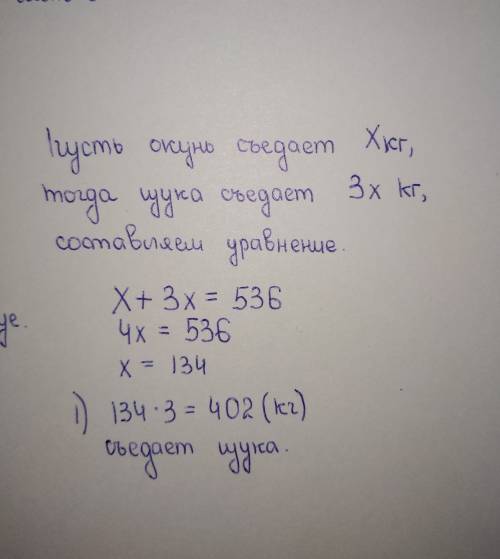 Пусть окунь съедает X кг,
тогда щука съедает 3x кг,
составляем уравнение.
X + 3x = 536
4x = 536
x = 134
1) 134·3 = 402 (кг)
съедает щука.